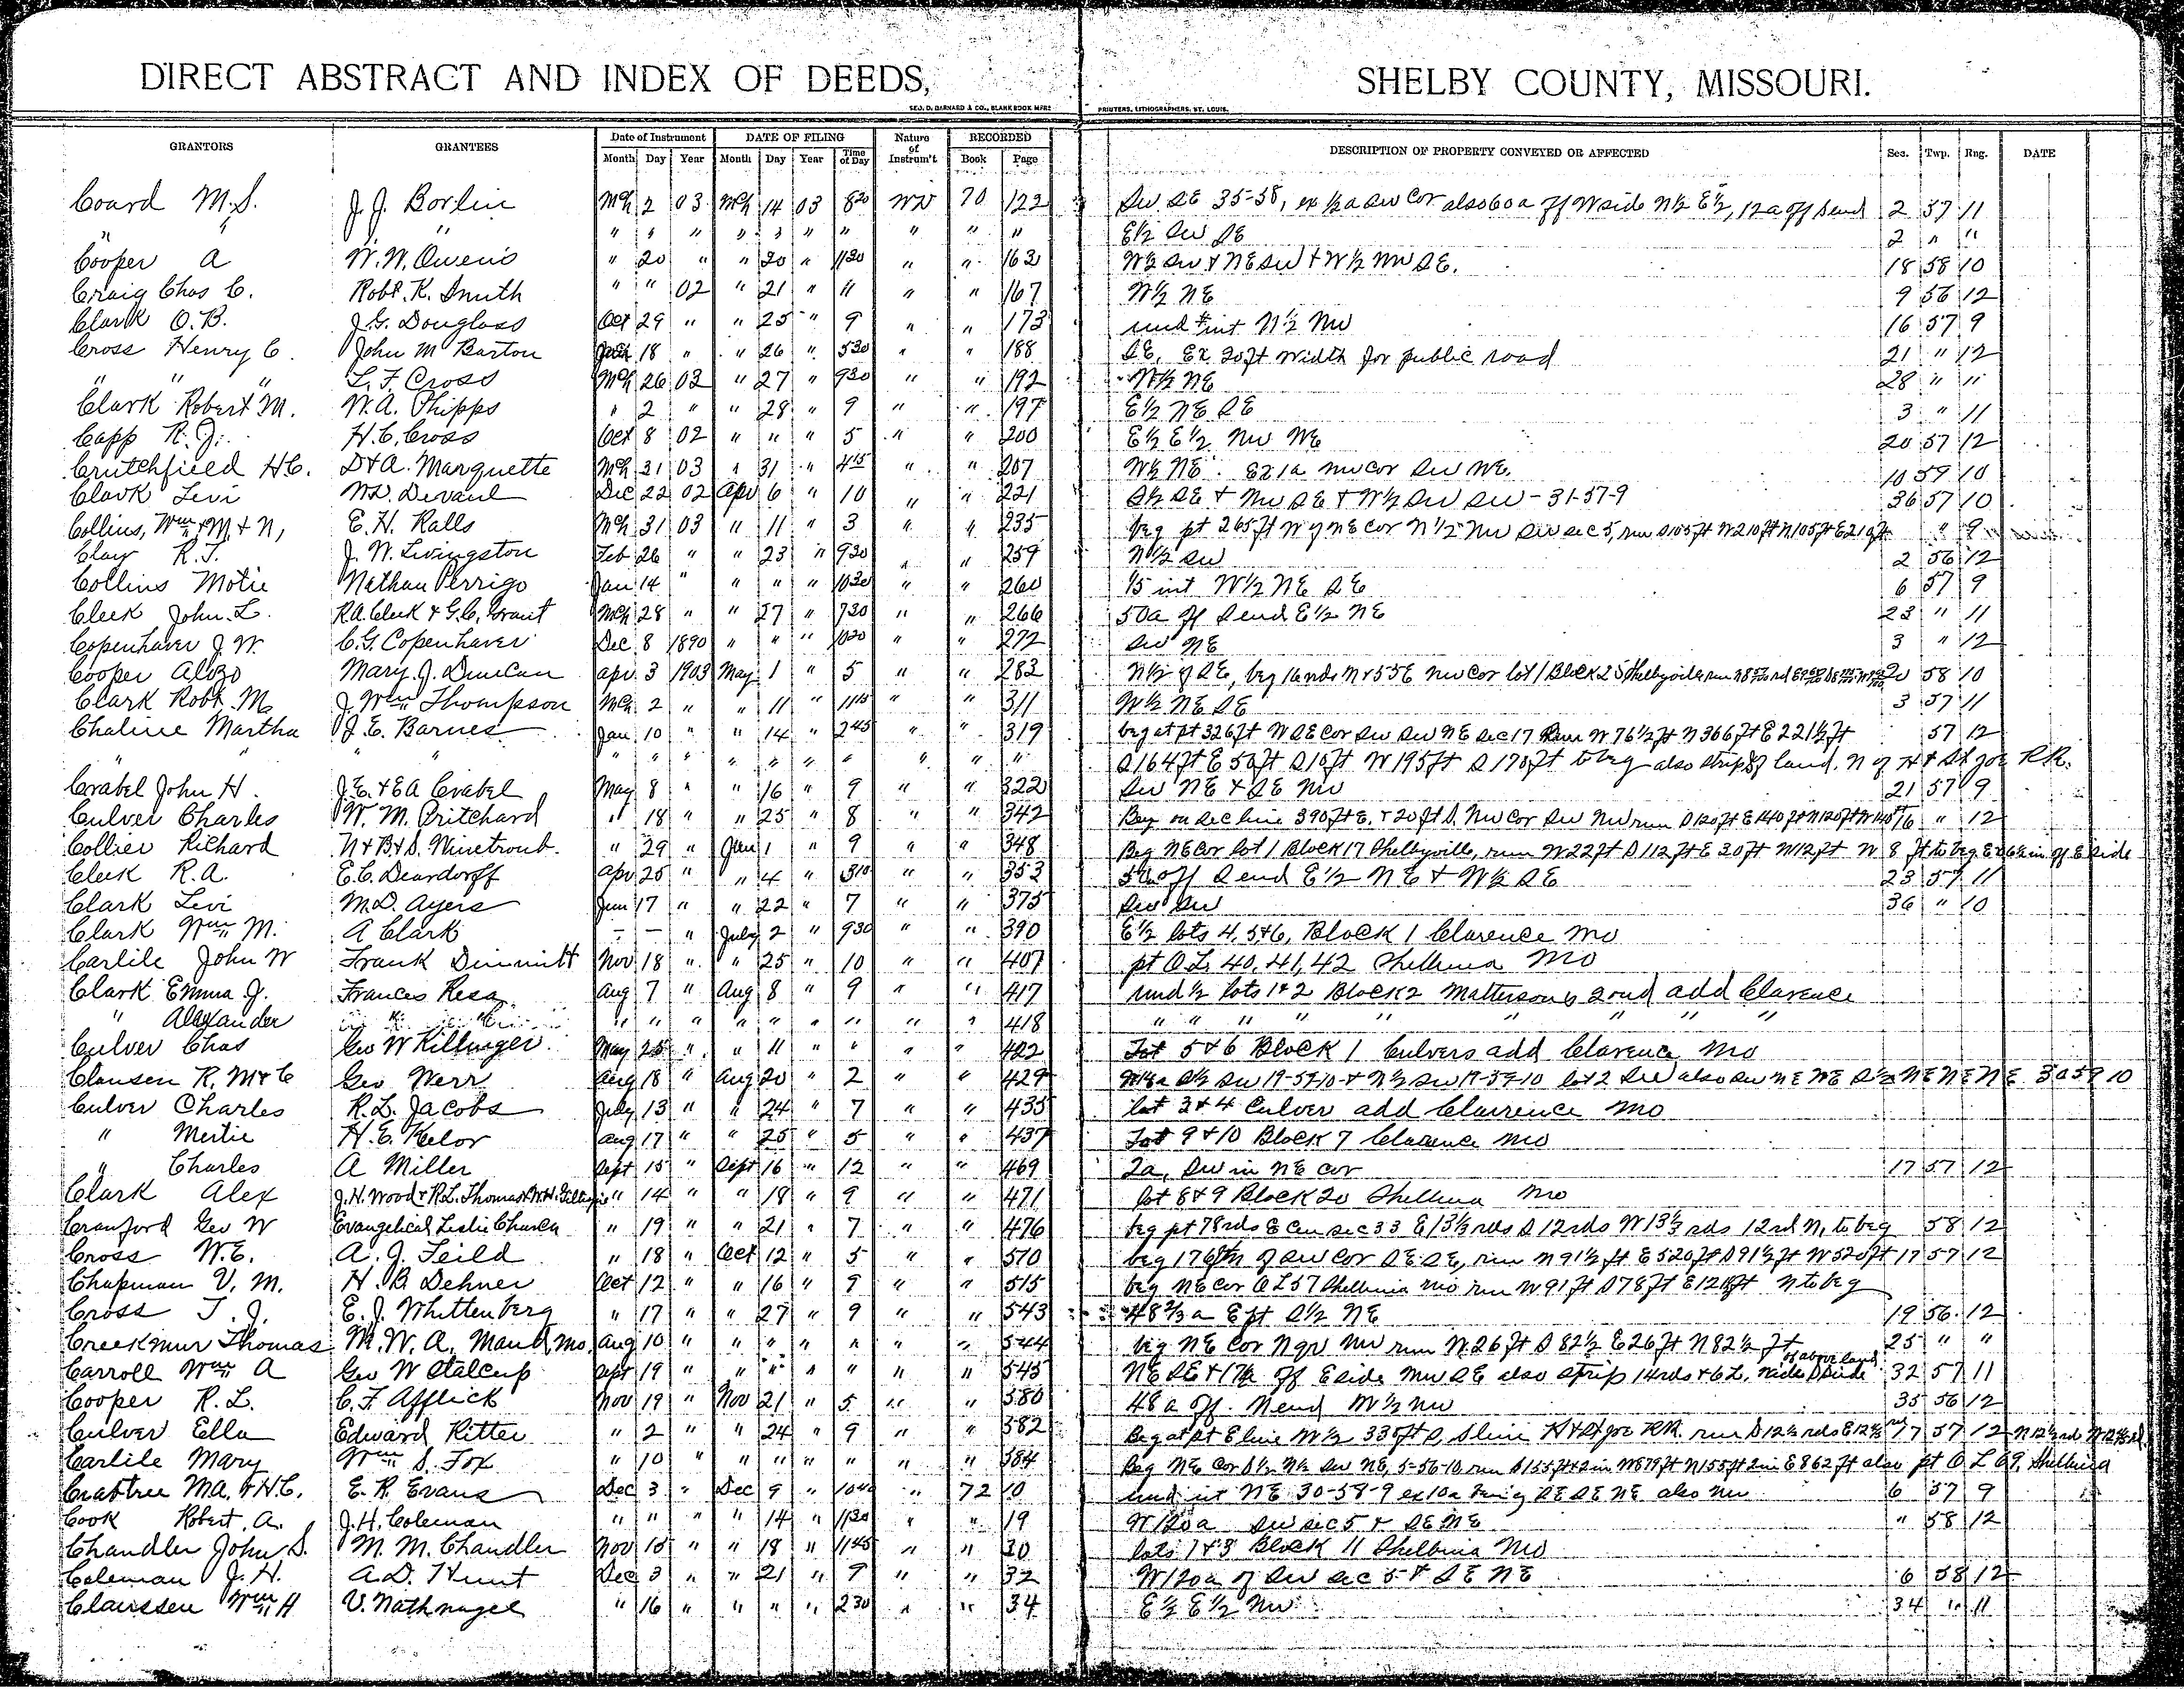 DIRECT ABSTRACT AND INDEX OF DEEDS, SHELBY COUNTY, MISSOURI.
GEO. D. BARNARD & CO., BLANK BOOK MFRS PRINTERS, LITHOGRAPHERS, ST. LOUIS.
GRANTORS GRANTEES Date of Instrument DATE OF FILING Nature of Instrum't RECORDED DESCRIPTION OF PROPERTY CONVEYED OR AFFECTED Sec. Twp. Rng. DATE
Month Day Year Month Day Year Time of Day Book Page
Coard M.S. J.J. Borlin Mch 2 03 Mch 14 03 8 20 WD 70 122 SW SE 35-58, ex ½ a SW Cor also 60a off W side N½ E½, 12a off S end 2 57 11
" " " " " " " " " " " " " E½ SW SE 2 " "
Cooper A W.W. Owens " 20 " " 20 " 11 30 " " 163 W½ SW & NE SW & W½ NW SE. 18 58 10
Craig Chas C. Robt. K. Smith " " 02 " 21 " 11 " " 167 W½ NE 9 56 12
Clark O.B. J.G. Douglass Oct 29 " " 25 " 9 " " 173 und int N½ NW 16 57 9
Cross Henry C. John M Barton 18 " " 26 " 5 30 " " 188 SE, Ex 20ft width for public road 21 " 12
" " " L.F. Cross Mch 26 03 " 27 " 9 30 " " 192 W½ NE 28 " "
Clark Robert M. W.A. Phipps " 2 " " 28 " 9 " " 197 E½ NE SE 3 " 11
Capp R.J. H.C. Cross Oct 8 02 " " " 5 " " 200 E½ E½ NW NE 20 57 12
Crutchfield H.C. D & A. Marquette Mch 31 03 " 31 " 4 15 " " 207 W½ NE. Ex 1a NW cor SW NE. 10 59 10
Clark Levi Wm. Devaul Dec 22 02 Apr 6 " 10 " " 221 S½ SE & NW SE & W½ SW SW - 31-57-9 36 57 10
Collins, Wm & M. & N, E.H. Ralls Mch 31 03 " 11 " 3 " " 235 beg pt 265ft W of NE cor N½ NW SW sec 5, run S 105ft W 210ft N 105ft E 210ft " 9
Clay R.T. J.W. Livingston Feb 26 " " 23 " 9 30 " " 259 N½ SW 2 56 12
Collins Motie Nathan Perrigo Jan 14 " " " " 10 30 " " 260 1/5 int W½ NE SE 6 57 9
Cleek John L. R.A. Cleek & G.C. Grant Mch 28 " " 27 " 7 30 " " 266 50a off S end E½ NE 23 " 11
Copenhaver J.W. C.G. Copenhaver Dec 8 1890 " " " 10 20 " " 272 SW NE 3 " 12
Cooper Alozo Mary J. Duncan Apr. 3 1903 May 1 " 5 " " 283 N½ of SE, beg NW Cor lot 1 Block 25 Shelbyville run 20 58 10
Clark Robt. M. J. Wm Thompson Mch 2 " " 11 " 11 15 " " 311 W½ NE SE 3 57 11
Chaline Martha J.E. Barnes Jan. 10 " " 14 " 2 45 " " 319 beg at pt 326ft W SE Cor SW SW NE Sec 17 Run W 76½ft N 366ft E 221½ft 57 12
" " " " " " " " " " " " " S 164ft E 50ft S 10ft W 195ft S 190ft to beg also strip of land. N of H & St Joe R.R.
Crabel John H. J.E. & E A Crabel May 8 " " 16 " 9 " " 322 SW NE & SE NW 21 57 9
Culver Charles W.M. Pritchard " 18 " " 25 " 8 " " 342 Beg on Sec line 390ft E. & 20ft S. NW Cor SW NW run S 120ft E 140ft N 120ft W 140ft 16 " 12
Collier Richard N & B & S. Winetroub. " 29 " June 1 " 9 " " 348 Beg NE Cor lot 1 Block 17 Shelbyville, run W 22ft S 112ft E 30ft N 112ft W 8 ft to beg. Ex 6½ in off E side
Cleek R.A. E.C. Deardorff Apr 25 " " 4 " 3 10 " " 353 50a off S end E½ NE & W½ SE 23 57 11
Clark Levi M.D. Ayers Jun 17 " " 22 " 7 " " 375 SW SW 36 " 10
Clark Wm M. A Clark - - " July 2 " 9 30 " " 390 E½ lots 4, 5 & 6, Block 1 Clarence Mo
Carlile John W Frank Dimmitt Nov 18 " " 25 " 10 " " 407 pt O.L. 40, 41, 42 Shelbina Mo
Clark Emma J. Frances Resa Aug 7 " Aug 8 " 9 " " 417 und ½ lots 1 & 2 Block 2 Mattersons 2nd add Clarence
" Alexander " " " " " " " " " " " 418 " " " " " " " " "
Culver Chas Geo W Killinger. May 25 " " 11 " " " " 422 Lot 5 & 6 Block 1 Culvers add Clarence Mo
Clausen R. M & C Geo Werr Aug 18 " Aug 20 " 2 " " 429 S½ SW 19-59-10 & N½ SW 19-59-10 lot 2 SW also SW NE NE S½ NE NE NE 30 59 10
Culver Charles R.L. Jacobs July 13 " " 24 " 7 " " 435 lot 3 & 4 Culver add Clarence Mo
" Mertie H.E. Keelor Aug 17 " " 25 " 5 " " 437 Lot 9 & 10 Block 7 Clarence Mo
" Charles A Miller Sept 15 " Sept 16 " 12 " " 469 2a, SW in NE cor 17 57 12
Clark Alex J.H. Wood & R.L. Thomas & W.H. Gillespie " 14 " " 18 " 9 " " 471 lot 8 & 9 Block 20 Shelbina Mo
Cranford Geo W Evangelical Leslie Church " 19 " " 21 " 7 " " 476 beg pt 78rds E Cen sec 33 E 13⅓ rds S 12rds W 13⅓ rds 12rd N, to beg 58 12
Cross W.E. A.J. Feild " 18 " Oct 12 " 5 " " 510 beg 176ft N of SW Cor SE SE, run N 91½ ft E 520ft S 91½ ft W 520ft 17 57 12
Chapman V.M. H.B. Dehner Oct 12 " " 16 " 9 " " 515 beg NE Cor O L 57 Shelbina Mo run W 91ft S 78ft E ft N to beg
Cross T.J. E.J. Whittenberg " 17 " " 27 " 9 " " 543 48⅔ a E pt S½ NE 19 56 12
Creekmur Thomas M.W.A. Maud, Mo Aug 10 " " " " " " " 544 beg NE Cor N qr NW run W 26ft S 82½ E 26ft N 82½ ft 25 " "
Carroll Wm A Geo W Stalcup Sept 19 " " " " " " " 545 NE SE & 17a off E side NW SE also strip 14rds & 6 L. wide S side of above land 32 57 11
Cooper R.L. C.F. Afflick Nov 19 " Nov 21 " 5 " " 580 48 a off N end W½ NW 35 56 12
Culver Ella Edward Ritter " 2 " " 24 " 9 " " 582 Beg at pt E line W½ 335ft S, S line H & St Joe RR. run S 12½ rds E 12½ rd 17 57 12 N 12½ rd W 12½ rd.
Carlile Mary Wm S. Fox " 10 " " " " " " " 584 Beg NE Cor S½ N½ SW NE, 5-56-10 run S 155ft 2 in W 879ft N 155ft 2 in E 862 ft also pt O L 69, Shelbina
Crabtree Ma. & H.C. E.R. Evans Dec 3 " Dec 9 " 10 40 " 72 10 und int NE 30-58-9 ex 10a being SE SE NE also NW 6 57 9
Cook Robert. A. J.H. Coleman " " " " 14 " 11 30 " " 19 W 120a SW sec 5 & SE NE " 58 12
Chandler John S. M.M. Chandler Nov 15 " " 18 " 11 45 " " 30 lots 1 & 3 Block 11 Shelbina Mo
Coleman J.H. A.D. Hunt Dec 3 " " 21 " 9 " " 32 W 120a of SW sec 5 & SE NE 6 58 12
Claussen Wm H V. Nathnagel " 16 " " " " 2 30 " " 34 E½ E½ NW 34 " 11